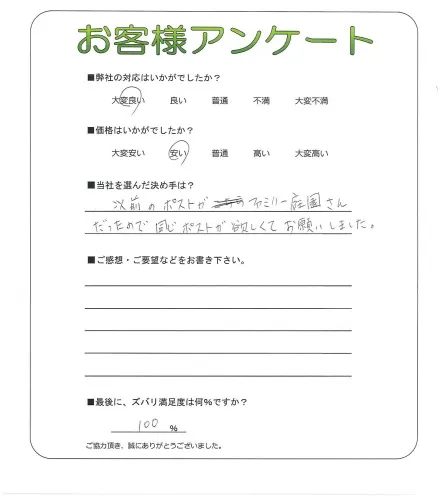 お客様アンケート
■弊社の対応はいかがでしたか？
大変良い 良い 普通 不満 大変不満
■価格はいかがでしたか？
大変安い 安い 普通 高い 大変高い
■当社を選んだ決め手は？
以前のポストがファミリー庭園さん
だったので同じポストが欲しくてお願いしました。
■ご感想・ご要望などをお書き下さい。
■最後に、ズバリ満足度は何%ですか？
100 %
ご協力頂き、誠にありがとうございました。